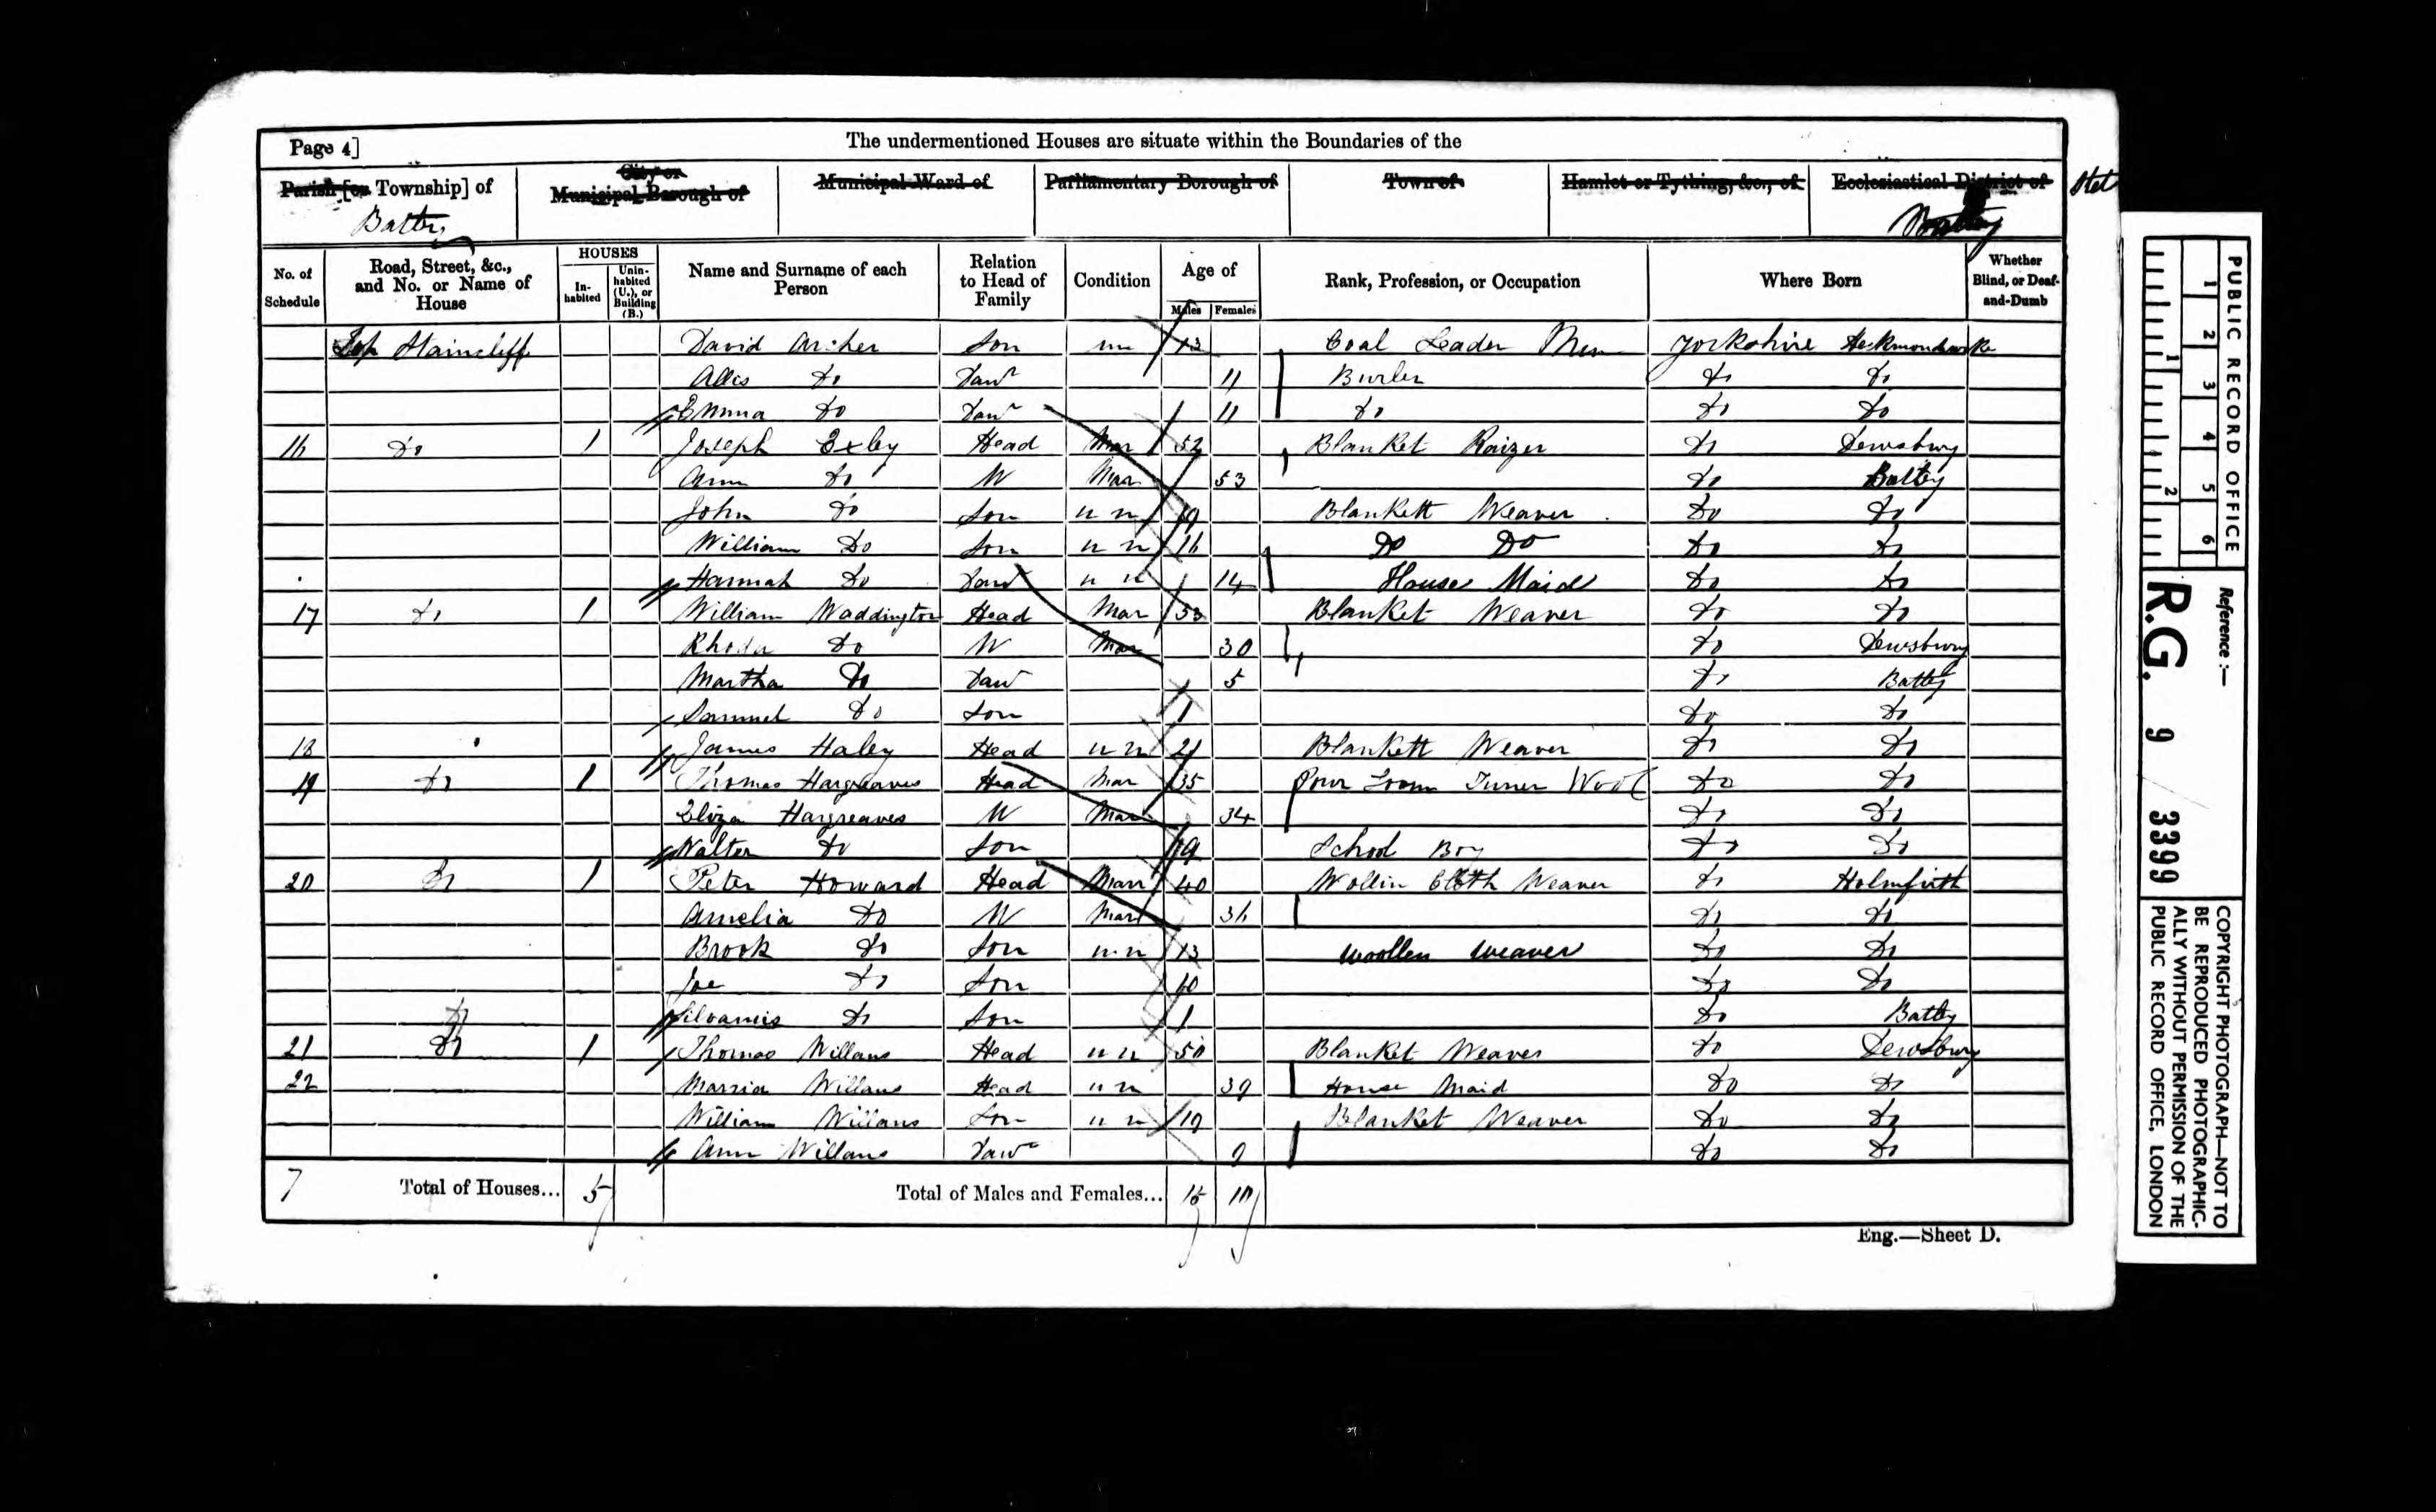 Page 4]
The undermentioned Houses are situate within the Boundaries of the
Parish [or Township] of
Batley
City or
Municipal Borough of
Municipal Ward of
Parliamentary Borough of
Town of
Hamlet or Tything, &c., of
Ecclesiastical District of
Batley
No. of Schedule
Road, Street, &c., and No. or Name of House
HOUSES
In-habited
Unin-habited (U.), or Building (B.)
Name and Surname of each Person
Relation to Head of Family
Condition
Age of
Males Females
Rank, Profession, or Occupation
Where Born
Whether Blind, or Deaf-and-Dumb
Top Staincliff David Archer Son un 13 Coal Leader Yorkshire Heckmondwike
Allis Do Daur 11 Burler Do Do
Emma Do Daur 11 Do Do Do
16 Do 1 Joseph Exley Head Mar 52 Blanket Raizer Do Dewsbury
Ann Do W Mar 53 Do Batley
John Do Son un 19 Blankett Weaver Do Do
William Do Son un 16 Do Do Do Do
Hannah Do Daur un 14 House Maid Do Do
17 Do 1 William Waddington Head Mar 53 Blanket Weaver Do Do
Rhoda Do W Mar 30 Do Dewsbury
Martha Do Daur 5 Do Batley
Samuel Do Son 1 Do Do
18 James Haley Head un 21 Blankett Weaver Do Do
19 Do 1 Thomas Hargreaves Head Mar 35 Powr Loom Tuner Wool Do Do
Eliza Hargreaves W Mar 34 Do Do
Walter Do Son 9 School Boy Do Do
20 Do 1 Peter Howard Head Marr 40 Wollin Cloth Weaver Do Holmfirth
Amelia Do W Mar 36 Do Do
Brook Do Son un 13 woollen weaver Do Do
Joe Do Son 10 Do Do
Silvanus Do Son 1 Do Batley
21 Do 1 Thomas Willans Head un 50 Blanket Weaver Do Dewsbury
22 Marria Willans Head un 39 House Maid Do Do
William Willans Son un 19 Blanket Weaver Do Do
Ann Willans Daur 9 Do Do
7 Total of Houses... 5 Total of Males and Females... 15 10
Eng.—Sheet D.
PUBLIC RECORD OFFICE
1 2 3 4 5 6
1 2
Reference :—
R.G. 9 / 3399
COPYRIGHT PHOTOGRAPH—NOT TO
BE REPRODUCED PHOTOGRAPHIC-
ALLY WITHOUT PERMISSION OF THE
PUBLIC RECORD OFFICE, LONDON